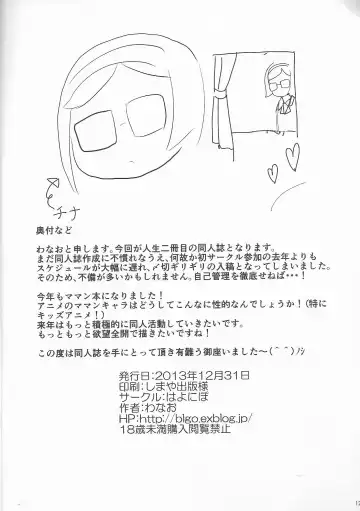 チナ
奥付など
わなおと申します。今回が人生二冊目の同人誌となります。
まだ同人誌作成に不慣れなうえ、何故か初サークル参加の去年よりも
スケジュールが大幅に遅れ、〆切ギリギリの入稿となってしまいました。
そのため、不備が多いかもしれません。自己管理を徹底せねば・・・!
今年もママン本になりました!
アニメのママンキャラはどうしてこんなに性的なんでしょうか!(特に
キッズアニメ!)
来年はもっと積極的に同人活動していきたいです。
もっともっと欲望全開で描きたいですね!
この度は同人誌を手にとって頂き有難う御座いました~(＾＾)ノシ
発行日:2013年12月31日
印刷:しまや出版様
サークル:はよにぼ
作者:わなお
HP:http://blgo.exblog.jp/
18歳未満購入閲覧禁止